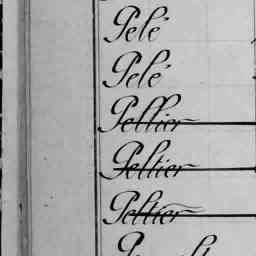 Pelé
Pelé
Pellier
Peltier
Peltier